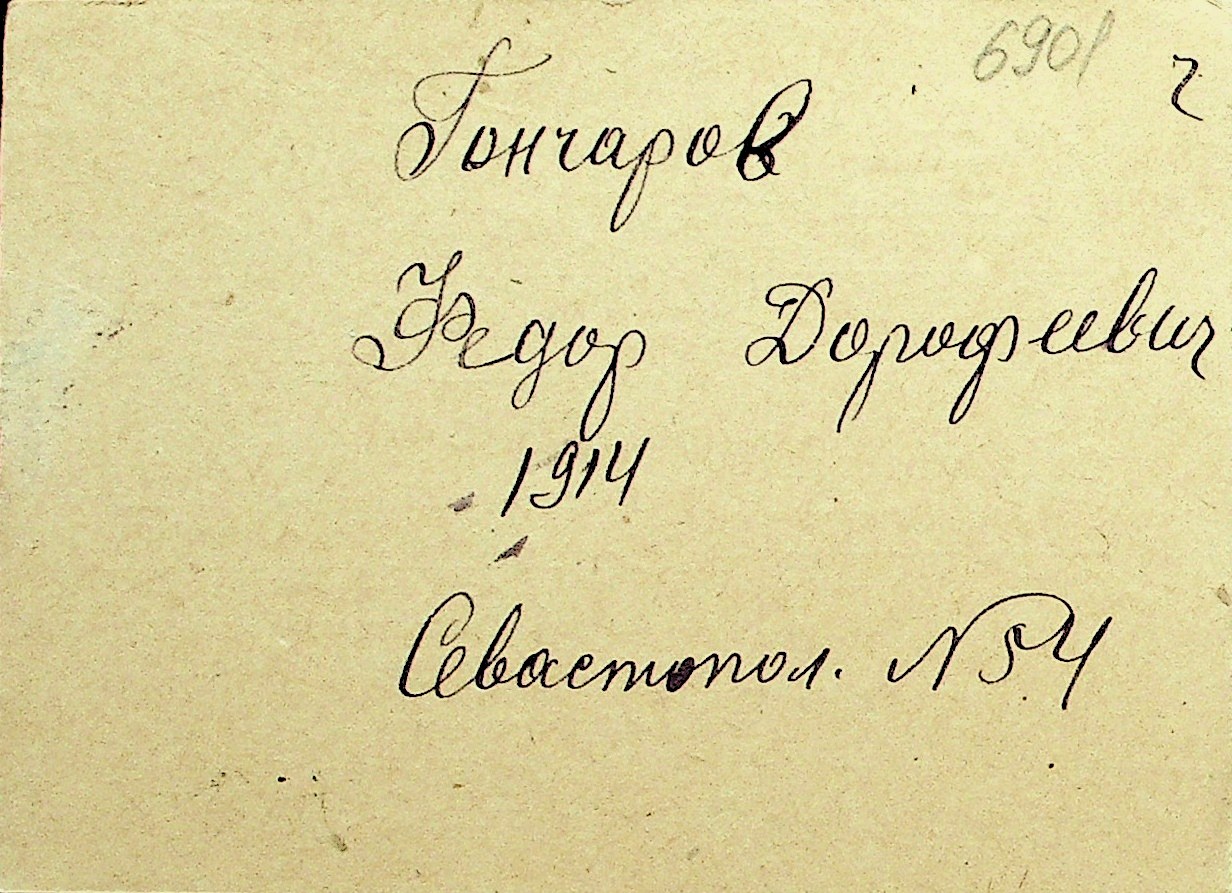 6901 ч
Гончаров
Федор Дорофеевич
1914
Севастопол. N 54